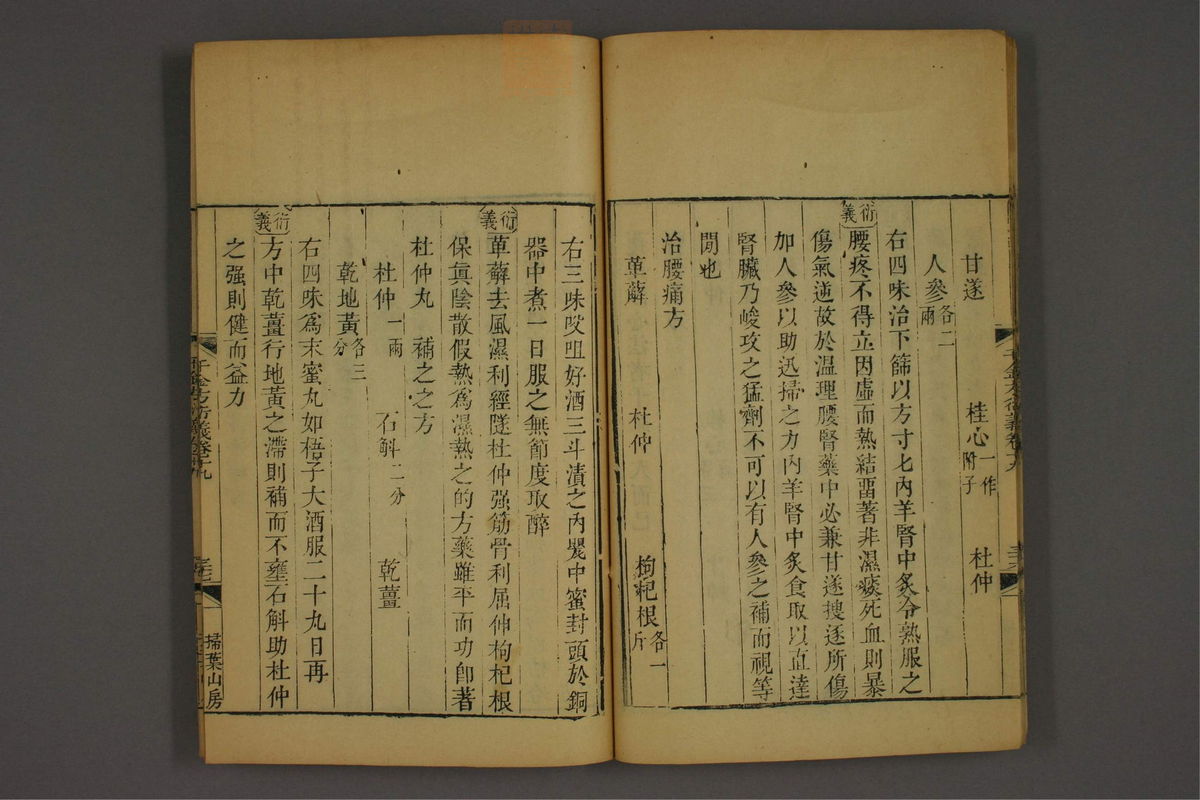 甘遂 桂心一作附子 杜仲
人參各二兩
右四味治下篩以方寸匕內羊腎中炙令熟服之
衍義
腰疼不得立因虛而熱結畱著非濕痰死血則暴
傷氣逆故於溫理腰腎藥中必兼甘遂搜逐所傷
加人參以助迅掃之力內羊腎中炙食取以直達
腎臟乃峻攻之猛劑不可以有人參之補而視等
閒也
治腰痛方
萆薢 杜仲 枸杞根各一斤
右三味㕮咀好酒三斗漬之內甖中蜜封頭於銅
器中煮一日服之無節度取醉
衍義
萆薢去風濕利經隧杜仲强筋骨利屈伸枸杞根
保眞陰散假熱爲濕熱之的方藥雖平而功卽著
杜仲丸 補之之方
杜仲一兩 石斛二分 乾薑
乾地黃各三分
右四味爲末蜜丸如梧子大酒服二十丸日再
衍義
方中乾薑行地黃之滯則補而不壅石斛助杜仲
之强則健而益力
千金方衍義卷十九
掃葉山房